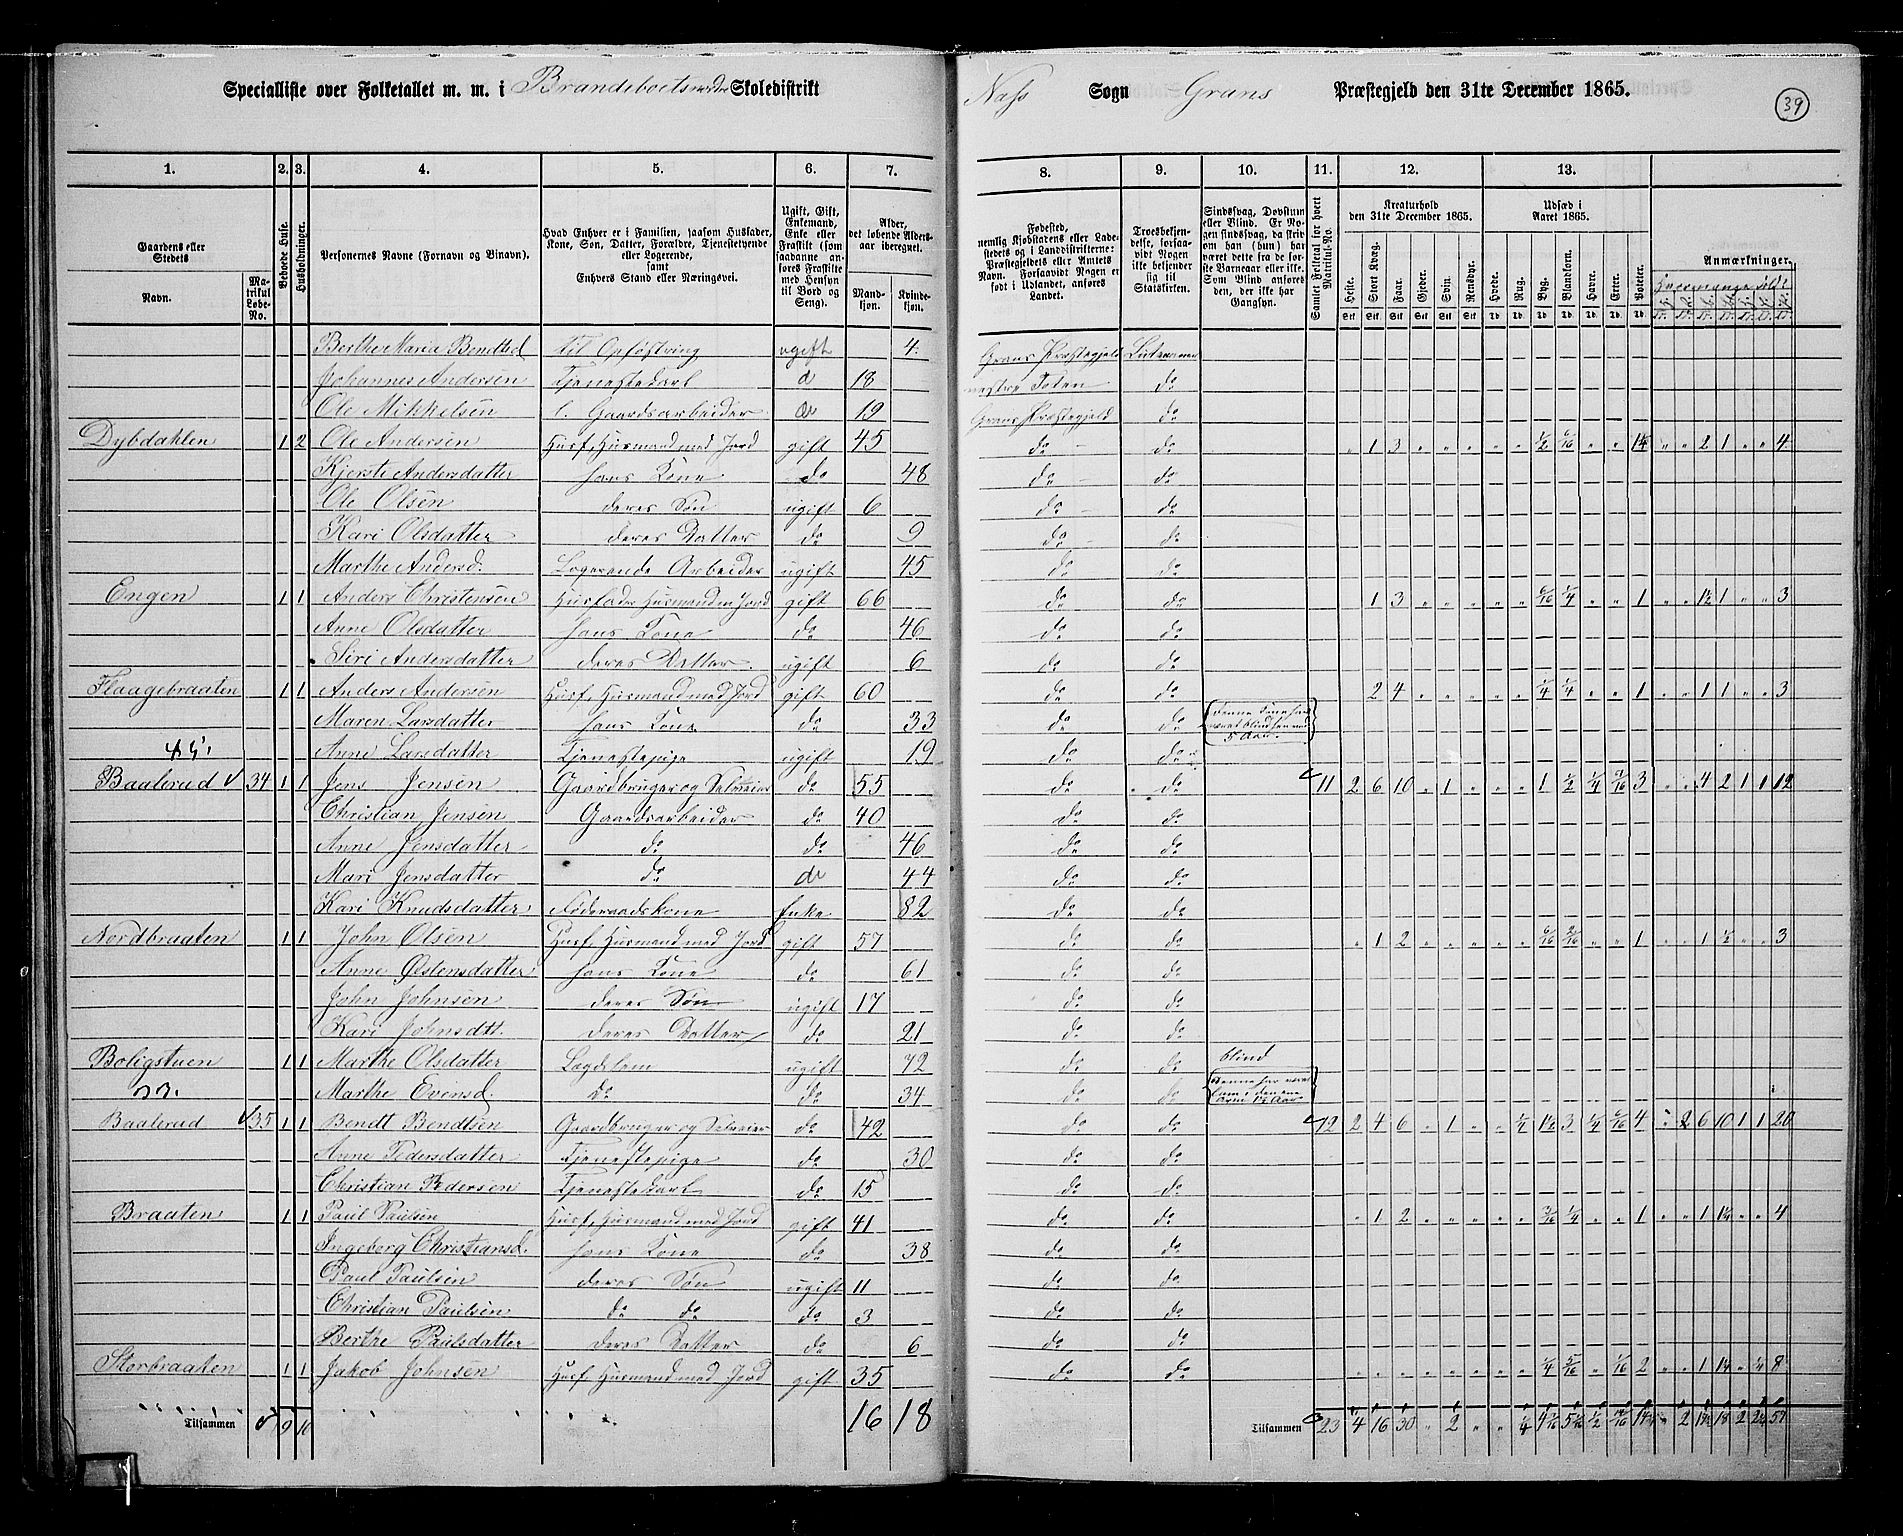 Specialliste over Folketallet m. m. i Brandeboets nordre Skoledistrikt
Næs Sogn Grans Præstegjeld den 31te December 1865.
39
1. 2. 3. 4. 5. 6. 7. 8. 9. 10. 11. 12. 13.
Gaardens eller Stedets
Navn.
Matrikul Løbe-No.
Beboede Huse.
Husholdninger.
Personernes Navne (Fornavn og Binavn).
Hvad Enhver er i Familien, saasom Husfader, Kone, Søn, Datter, Forældre, Tjenestetyende eller Logerende, samt Enhvers Stand eller Næringsvei.
Ugift, Gift, Enkemand, Enke eller Fraskilt (som saadanne anføres Fraskilte med Hensyn til Bord og Seng).
Alder, det løbende Aldersaar iberegnet.
Mandkjøn.
Kvindekjøn.
Fødested, nemlig Kjøbstadens eller Ladestedets og i Landdistrikterne: Præstegjeldets eller Amtets Navn. Forsaavidt Nogen er født i Udlandet, anføres Landet.
Troesbekjendelse, forsaavidt Nogen ikke bekjender sig til Statskirken.
Sindssvag, Døvstum eller Blind. Er Nogen sindssvag, da skrives om han (hun) har været dette fra de første Barneaar eller ikke. Som Blind anføres den, der ikke har Gangsyn.
Samlet Folketal for hvert Matrikul-No.
Kreaturhold den 31te December 1865.
Heste. Stort Kvæg. Faar. Gjeder. Svin. Rensdyr.
Udsæd i Aaret 1865.
Hvede. Rug. Byg. Blandkorn. Havre. Erter. Poteter.
Anmærkninger.
Berthe Maria Bendtsd. til Opfostring ugift 4 Grans Præstegjeld Lutheraner
Johannes Andersen Tjenestekarl do 18 vestre Toten do
Ole Mikkelsen l. Gaardsarbeider do 19 Grans Præstegjeld do
Dybdahlen 1 2 Ole Andersen Husf, Husmand med Jord gift 45 do do " 1 3 " " " " " 1/2 6/16 " " 1/4 " " 2 1 " " 4
Kjersti Andersdatter hans Kone do 48 do do
Ole Olsen deres Søn ugift 6 do do
Kari Olsdatter deres Datter do 9 do do
Marthe Andersd. Logerende Arbeider ugift 45 do do
Engen 1 1 Anders Christensen Husfader Husmand m Jord gift 66 do do 1 3 " " " " " 6/16 1/4 " " 1 " " 1/2 1 " " 3
Anne Olsdatter hans Kone do 46 do do
Siri Andersdatter deres Datter ugift 6 do do
Flaagebraaten 1 1 Anders Andersen Husf, Husmand med Jord gift 60 do do 2 4 " " " " " 1/4 1/4 " " 1 " " 1 1 " " 3
Maren Larsdatter hans Kone do 33 do do
Anne Larsdatter Tjenestepige ugift 19 do do
Baalerud 34 1 1 Jens Jensen Gaardbruger og Selveier do 55 do do 11 2 6 10 " 1 " " " 1 1/2 1/4 3 " " 4 2 1 1 12
Christian Jensen Gaardsarbeider do 40 do do
Anne Jensdatter do do 46 do do
Mari Jensdatter do do 44 do do
Kari Knudsdatter Føderaadskone Enke 82 do do
Nordbraaten 1 1 John Olsen Husf, Husmand med Jord gift 57 do do " 1 2 " " " " " 6/16 2/16 " " 1 " " 1 1/2 " " 3
Anne Østensdatter hans Kone do 61 do do
John Johnsen deres Søn ugift 17 do do
Kari Johnsdtt. deres Datter do 21 do do
Boligstuen 1 1 Marthe Olsdatter Lægdslem ugift 72 do do blind
Marthe Evensd. do do 34 do do
Baalerud 35 1 1 Bendt Bendtsen Gaardbruger og Selveier do 42 do do 12 2 4 6 " 1 " " 1/4 1 1/2 3 1/4 4 " 2 6 10 1 1 20
Anne Pedersdatter Tjenestepige do 30 do do
Christian Pedersen Tjenestekarl do 15 do do
Braaten 1 1 Paul Paulsen Husf, Husmand med Jord gift 41 do do " 1 2 " " " " " 3/16 1/4 " " 1 " " 1 1/4 " " 4
Ingeborg Christiansd. hans Kone do 38 do do
Paul Paulsen deres Søn ugift 11 do do
Christian Paulsen do do do 3 do do
Berthe Paulsdatter deres Datter do 6 do do
Storbraaten 1 1 Jakob Johnsen Husf, Husmand med Jord gift 35 do do " " " " " " " " 1/4 5/16 " 1/16 2 " " 1 1/4 " 1/4 8
Tilsammen 9 10 16 18 Tilsammen 23 4 16 30 " 2 " " 1/4